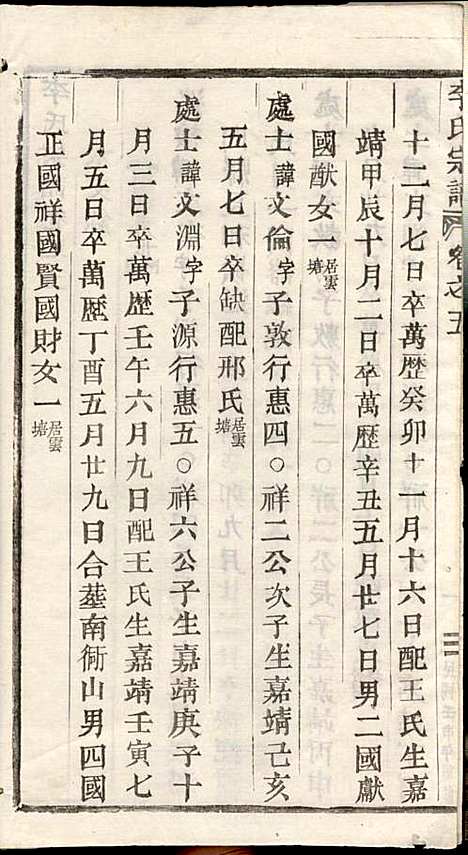 李氏宗譜 卷之五
十二月七日卒萬歷癸卯十一月十六日配王氏生嘉
靖甲辰十月二日卒萬歷辛丑五月廿七日男二國獻
國猷女一居雲塘
處士諱文倫字子敦行惠四○祥二公次子生嘉靖己亥
五月七日卒缺配邢氏居雲塘
處士諱文淵字子源行惠五○祥六公子生嘉靖庚子十
月三日卒萬歷壬午六月九日配王氏生嘉靖壬寅七
月五日卒萬歷丁酉五月廿九日合墓南衕山男四國
正國祥國賢國財女一居雲塘